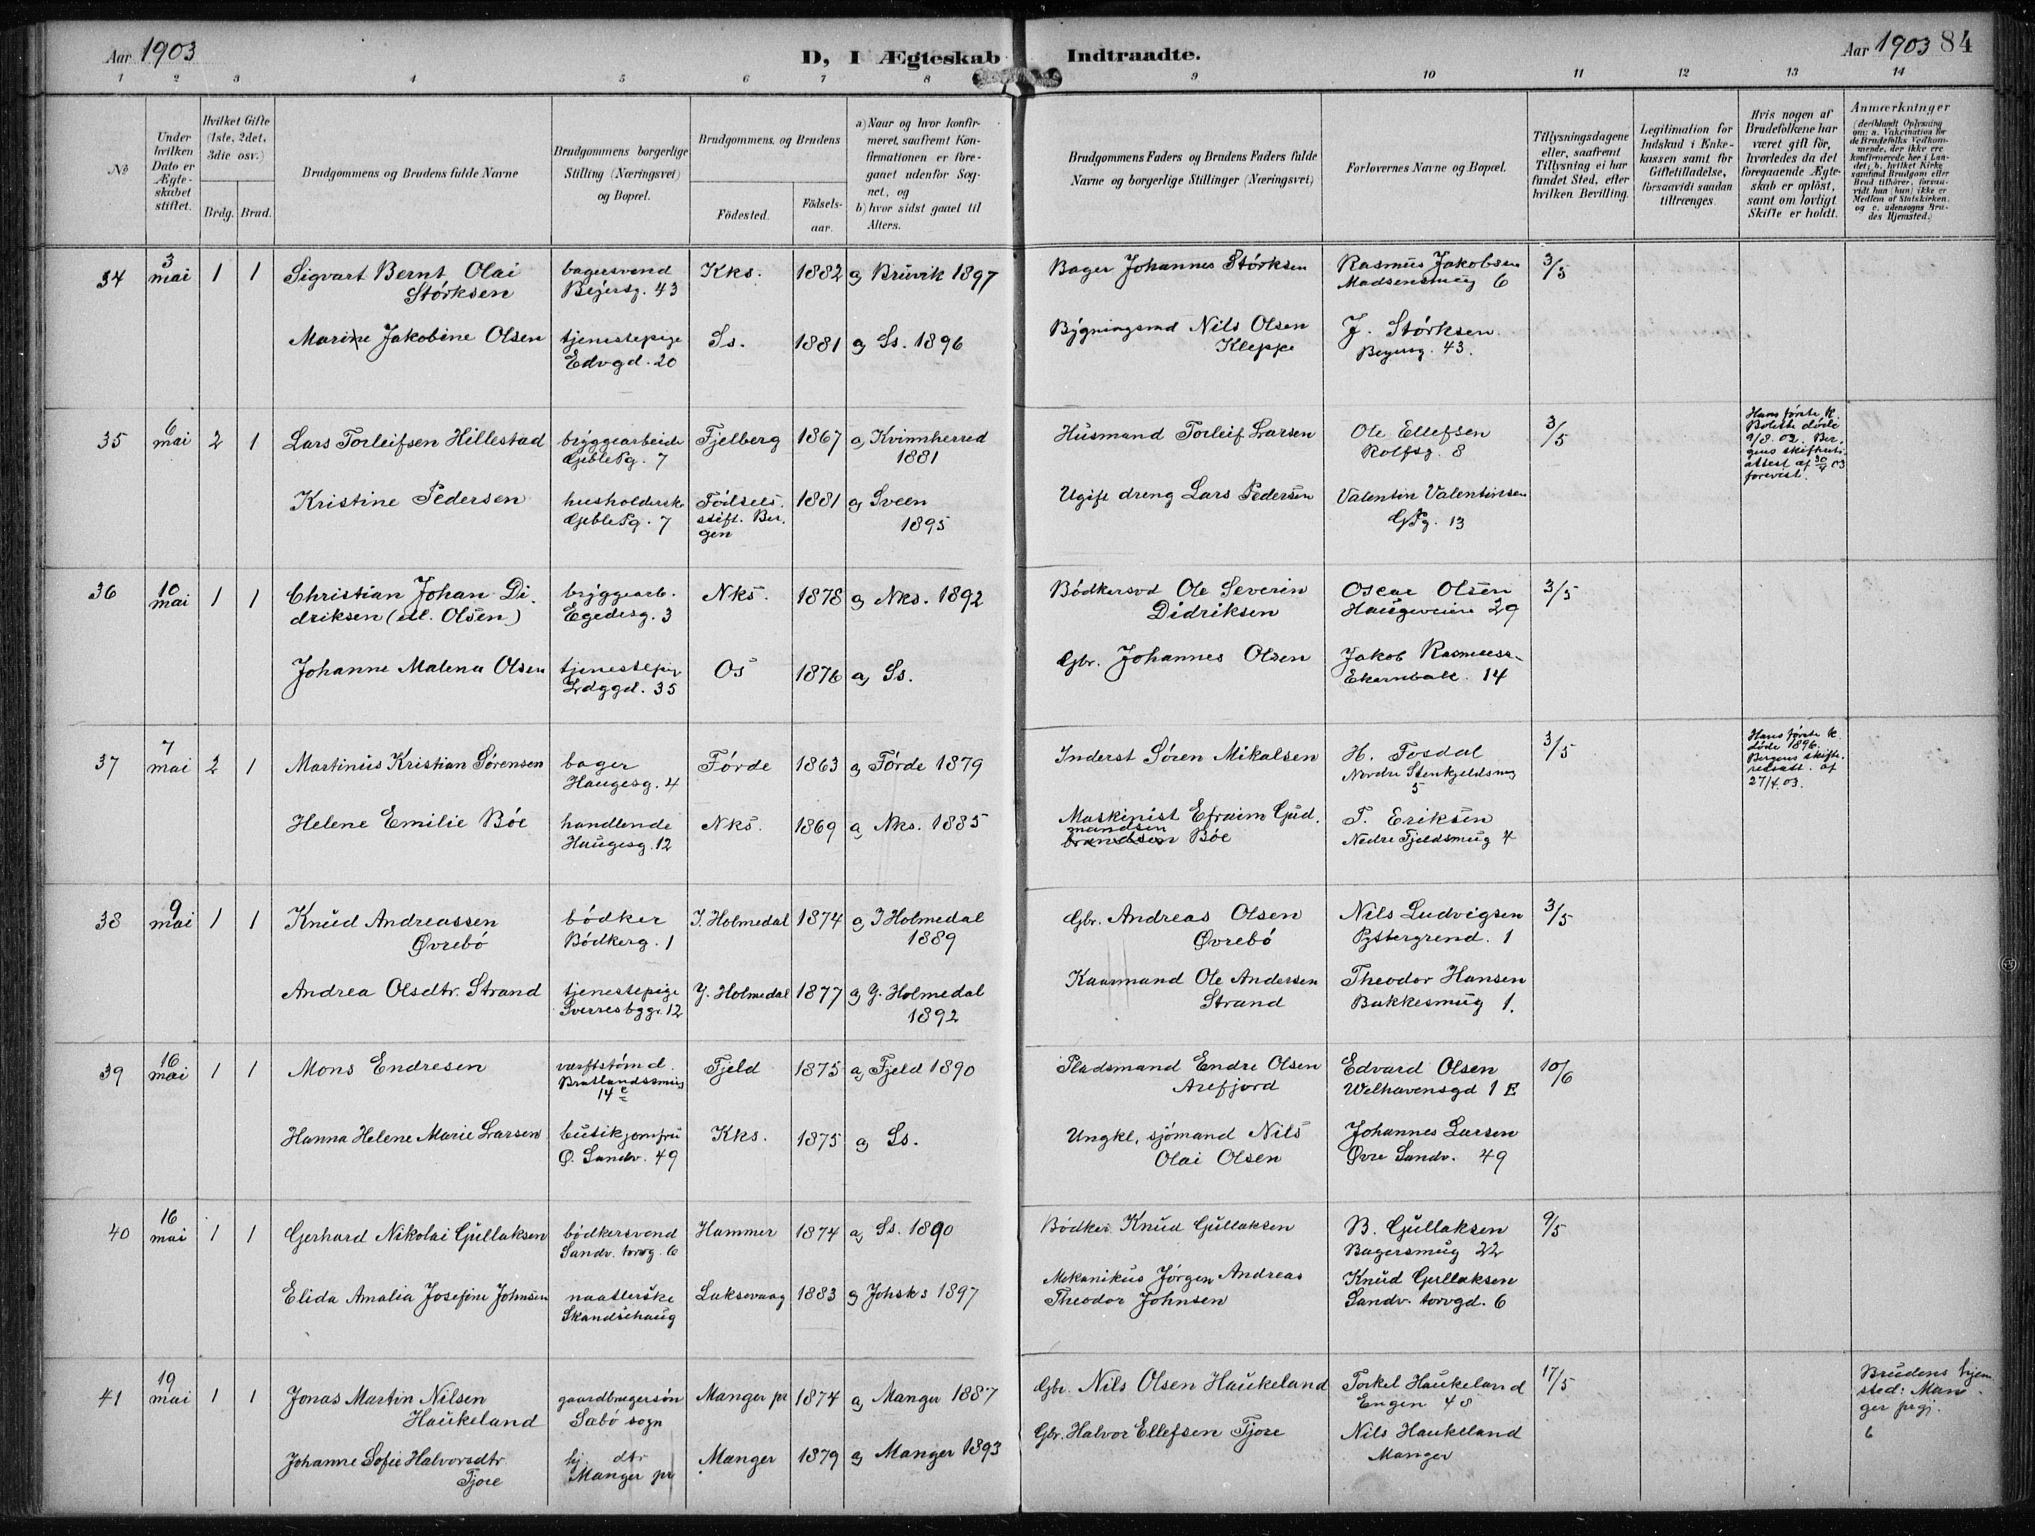 Aar 1903
D, I Ægteskab Indtraadte.
Aar 1903 84
1 2 3 4 5 6 7 8 9 10 11 12 13 14
No
Under hvilken Dato er Ægteskabet stiftet.
Hvilket Gifte (1ste, 2det, 3die osv.)
Brdg. Brud.
Brudgommens og Brudens fulde Navne
Brudgommens borgerlige Stilling (Næringsvei) og Bopæl.
Brudgommens og Brudens
Födested. Födselsaar.
a) Naar og hvor konfirmeret, saafremt Konfirmationen er foregaaet udenfor Sognet, og
b) hvor sidst gaaet til Alters.
Brudgommens Faders og Brudens Faders fulde Navne og borgerlige Stillinger (Næringsvei)
Forlovernes Navne og Bopæl.
Tillysningsdagene eller, saafremt Tillysning ei har fundet Sted, efter hvilken Bevilling.
Legitimation for Indskud i Enkekassen samt for Giftetilladelse, forsaavidt saadan tiltrænges.
Hvis nogen af Brudefolkene har været gift før, hvorledes da det foregaaende Ægteskab er oplöst, samt om lovligt Skifte er holdt.
Anmærkninger
(deriblandt Oplysning om: a. Vakcination for de Brudefolks Vedkommende, der ikke ere konfirmerede her i Landet, b. hvilket Kirkesamfund Brudgom eller Brud tilhører, forsaavidt han (hun) ikke er Medlem af Statskirken, og c. udensogns Brudes Hjemsted.)
34 3 mai 1 1 Sigvart Bernt Olai bagersvend Kks. 1882 a, Bruvik 1897 Bager Johannes Störksen Rasmus Jakobsen 3/5
Störksen Beyersg. 43 Madsensmug 6
Marine Jakobine Olsen tjenestepige Ss. 1881 a, Ss. 1896 Bygningsmd Nils Olsen J. Störksen
Edvgd. 20 Kleppe Beyersg. 43.
35 6 mai 2 1 Lars Torleifsen Hillestad bryggearbeide Fjelberg 1867 a, Kvinnherred Husmand Torleif Larsen Ole Ellefsen 3/5
Geblesg. 7 1881 Rolfsg. 8
Hans første k. Bolette døde 9/8 02. Bergens skifteratts attest af 30/4 03 forevist.
Kristine Pedersen husholderske Födsels. 1881 a, Sveen Ugift dreng Lars Pedersen Valentin Valentinsen
Geblesg. 7 stift. Bergen 1895 13
36 10 mai 1 1 Christian Johan Di- bryggearb. Nks. 1878 a, Nks. 1892 Bödkersvd Ole Severin Oscar Olsen 3/5
driksen (ell. Olsen) Egedesg. 3 Didriksen Haugeveien 29
Johanne Malena Olsen tjenestepig Os 1876 a, Ss. Gbr. Johannes Olsen Jakob Rasmuss.
35 14
37 7 mai 2 1 Martinus Kristian Sørensen bager Förde 1863 a, Förde 1879 Inderst Sören Mikalsen H. Fosdal 3/5
Haugesg. 4 Nordre Stenkjeldsmug 5
Hans første k. døde 1896. Bergens skifte- af 27/4 03.
Helene Emilie Böe handlende Nks. 1869 a, Nks. 1885 Maskinist Efraim Gud- T. Eriksen
Haugesg. 12 mandsen brandsen Böe Nedre Fjeldsmug 4
38 9 mai 1 1 Knud Andreassen bödker I. Holmedal 1874 a, I Holmedal Gbr. Andreas Olsen Nils Ludvigsen 3/5
Øvrebö Bödkerg. 1 1889 Øvrebö Pyttergrend. 1
Andrea Olsdtr. Strand tjenestepige Y. Holmedal 1877 a, Y. Holmedal Kaarmand Ole Andersen Theodor Hansen
Sverresbggr. 12 1892 Strand Bakkesmug 1.
39 16 mai 1 1 Mons Endresen værftstömd. Fjeld 1875 a, Fjeld 1890 Pladsmand Endre Olsen Edvard Olsen 10/6
Bratlandssmug 14 c Arefjord Welhavensgd 1 E
Hanna Helene Marie Larsen butikjomfru Kks. 1875 a, Ss. Ungkl. sjömand Nils Johannes Larsen
Ø. Sandv. 49 Olai Olsen Øvre Sandv. 49
40 16 mai 1 1 Gerhard Nikolai Gullaksen bödkersvend Hammer 1874 a, Ss. 1890 Bödker Knud Gullaksen B. Gullaksen 9/5
Sandv. torvg. 6 Bagersmug 22
Elida Amalia Josefine Johnsen naatlerske Laksevaag 1883 a, Johsks 1897 Mekanikus Jörgen Andreas Knud Gullaksen
Skandsehaug Theodor Johnsen Sandv. torvgd. 6
41 19 mai 1 1 Jonas Martin Nilsen gaardbrugersön Manger pr 1874 a, Manger 1887 Gbr. Nils Olsen Haukeland Torkel Haukeland 17/5
Haukeland Sæbö sogn Engen 48
Brudens hjemsted: Manger prgj.
6
Johanne Sofie Halvorsdtr. hj. dtr Manger 1879 a, Manger 1893 Gbr. Halvor Ellefsen Tjore Nils Haukeland
Tjore Manger pr Manger